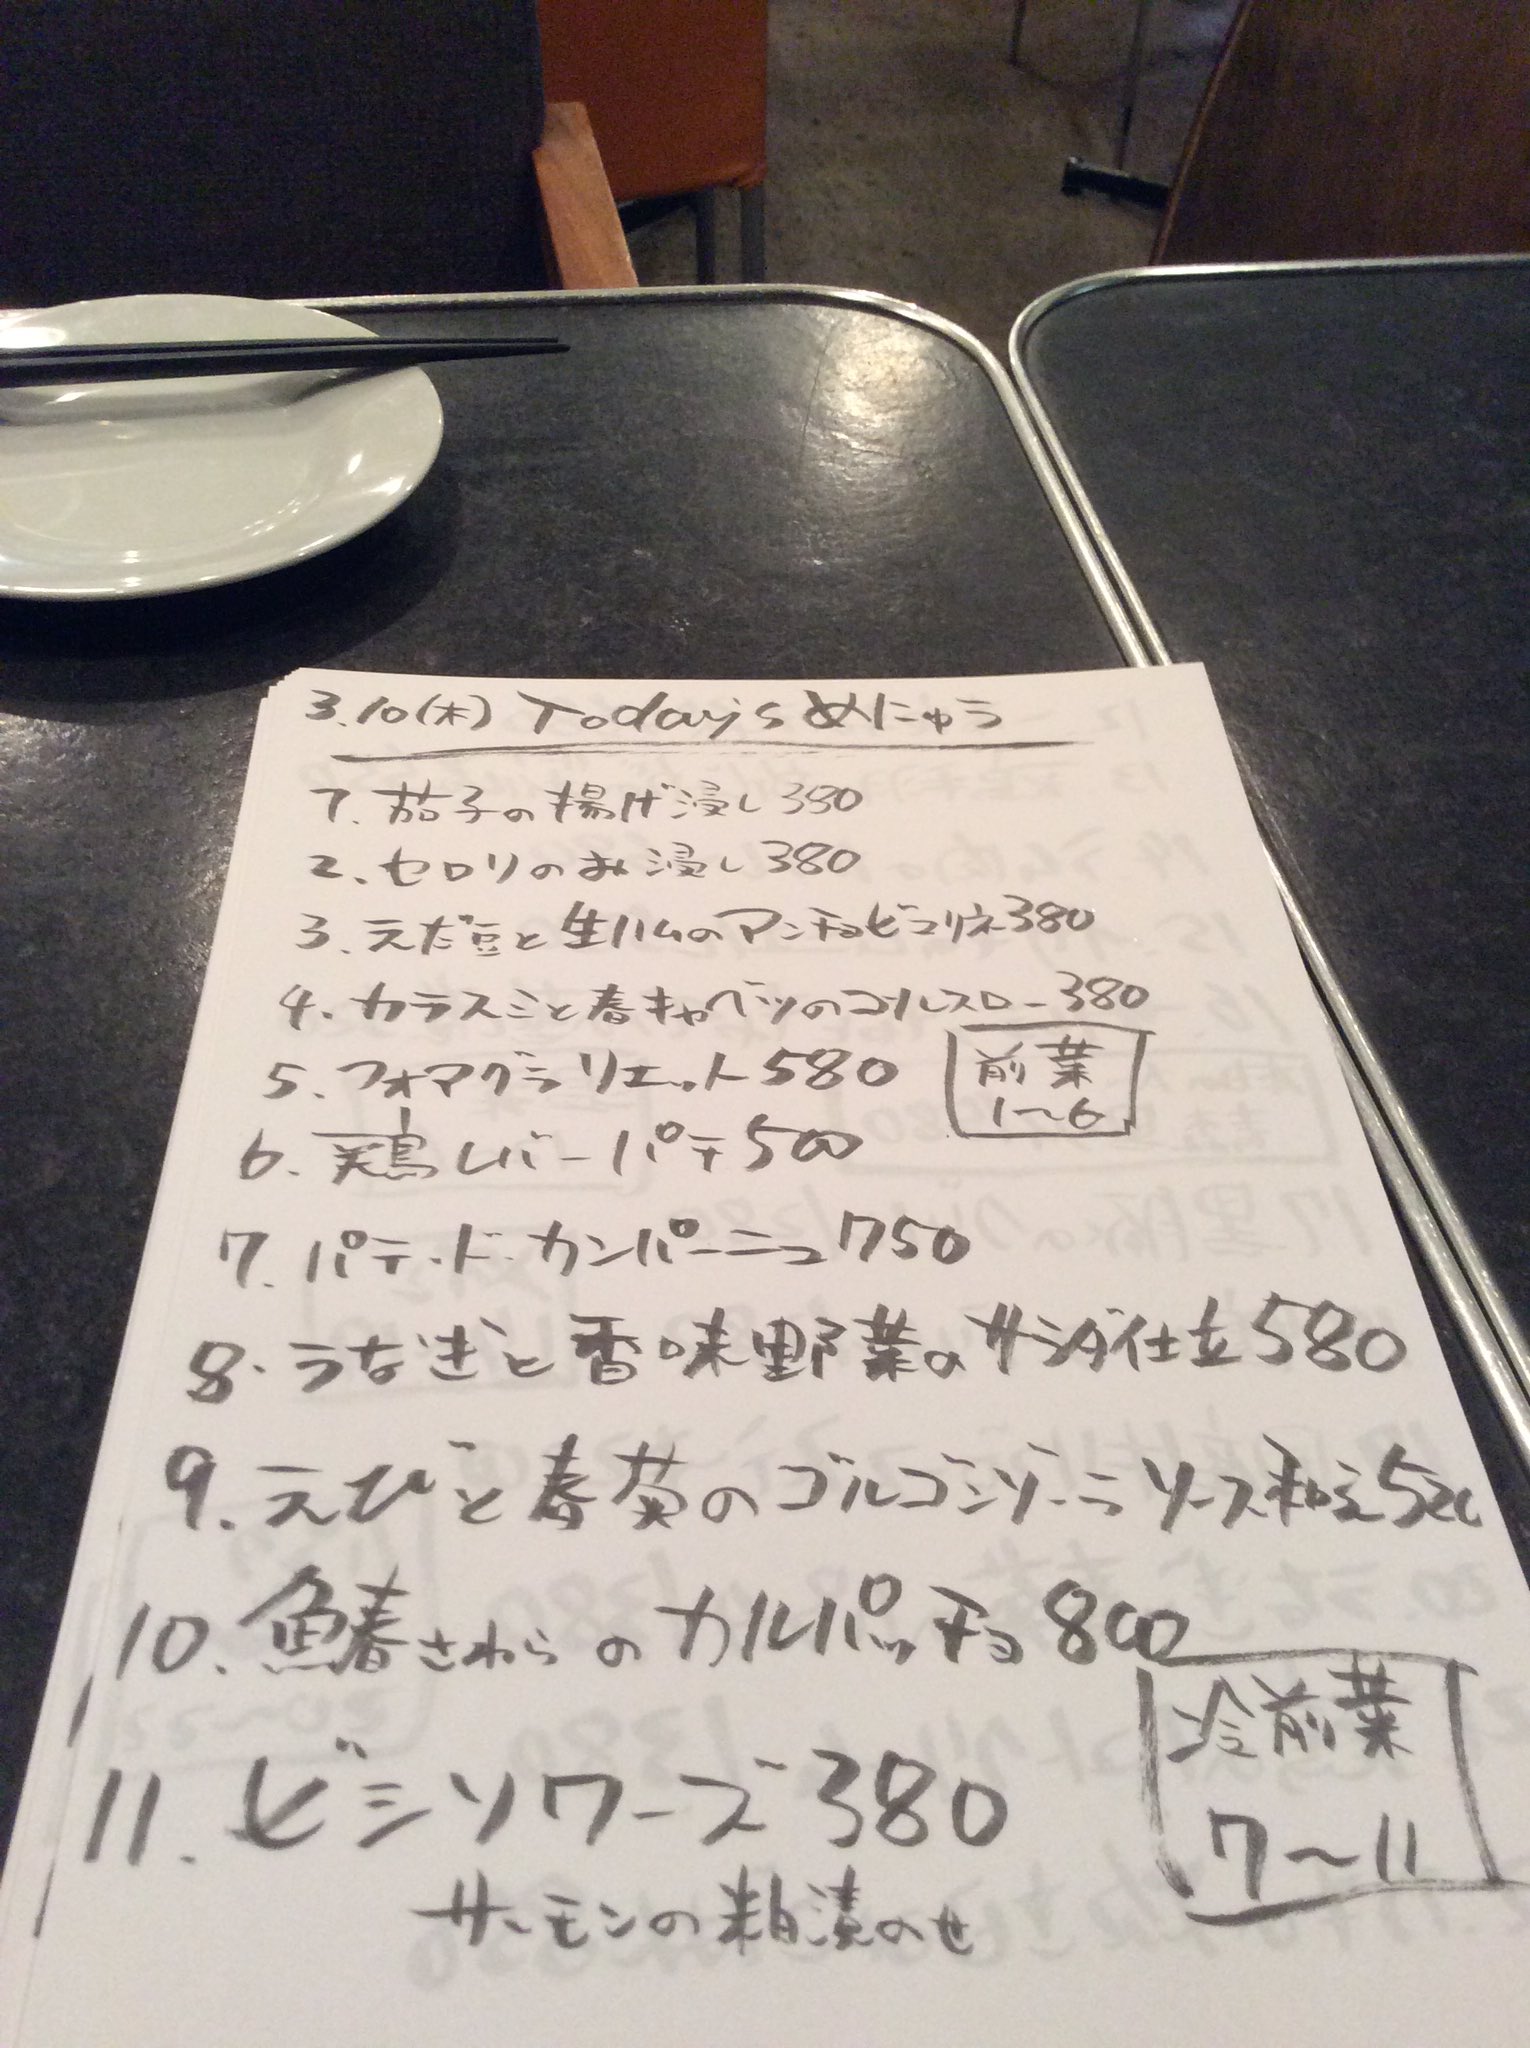 3.10(木) Today's めにゅう
1. 茄子の揚げ浸し 380
2. セロリのお浸し 380
3. えだ豆と生ハムのアンチョビマリネ 380
4. カラスミと春キャベツのコールスロー 380
5. フォアグラリエット 580
前菜
1〜6
6. 鶏レバーパテ 500
7. パテ・ド・カンパーニュ 750
8. うなぎと香味野菜のサラダ仕立 580
9. えびと春菊のゴルゴンゾーラソース和え
10. 鰆さわらのカルパッチョ 800
冷前菜
7〜11
11. ビシソワーズ 380
サーモンの粕漬のせ